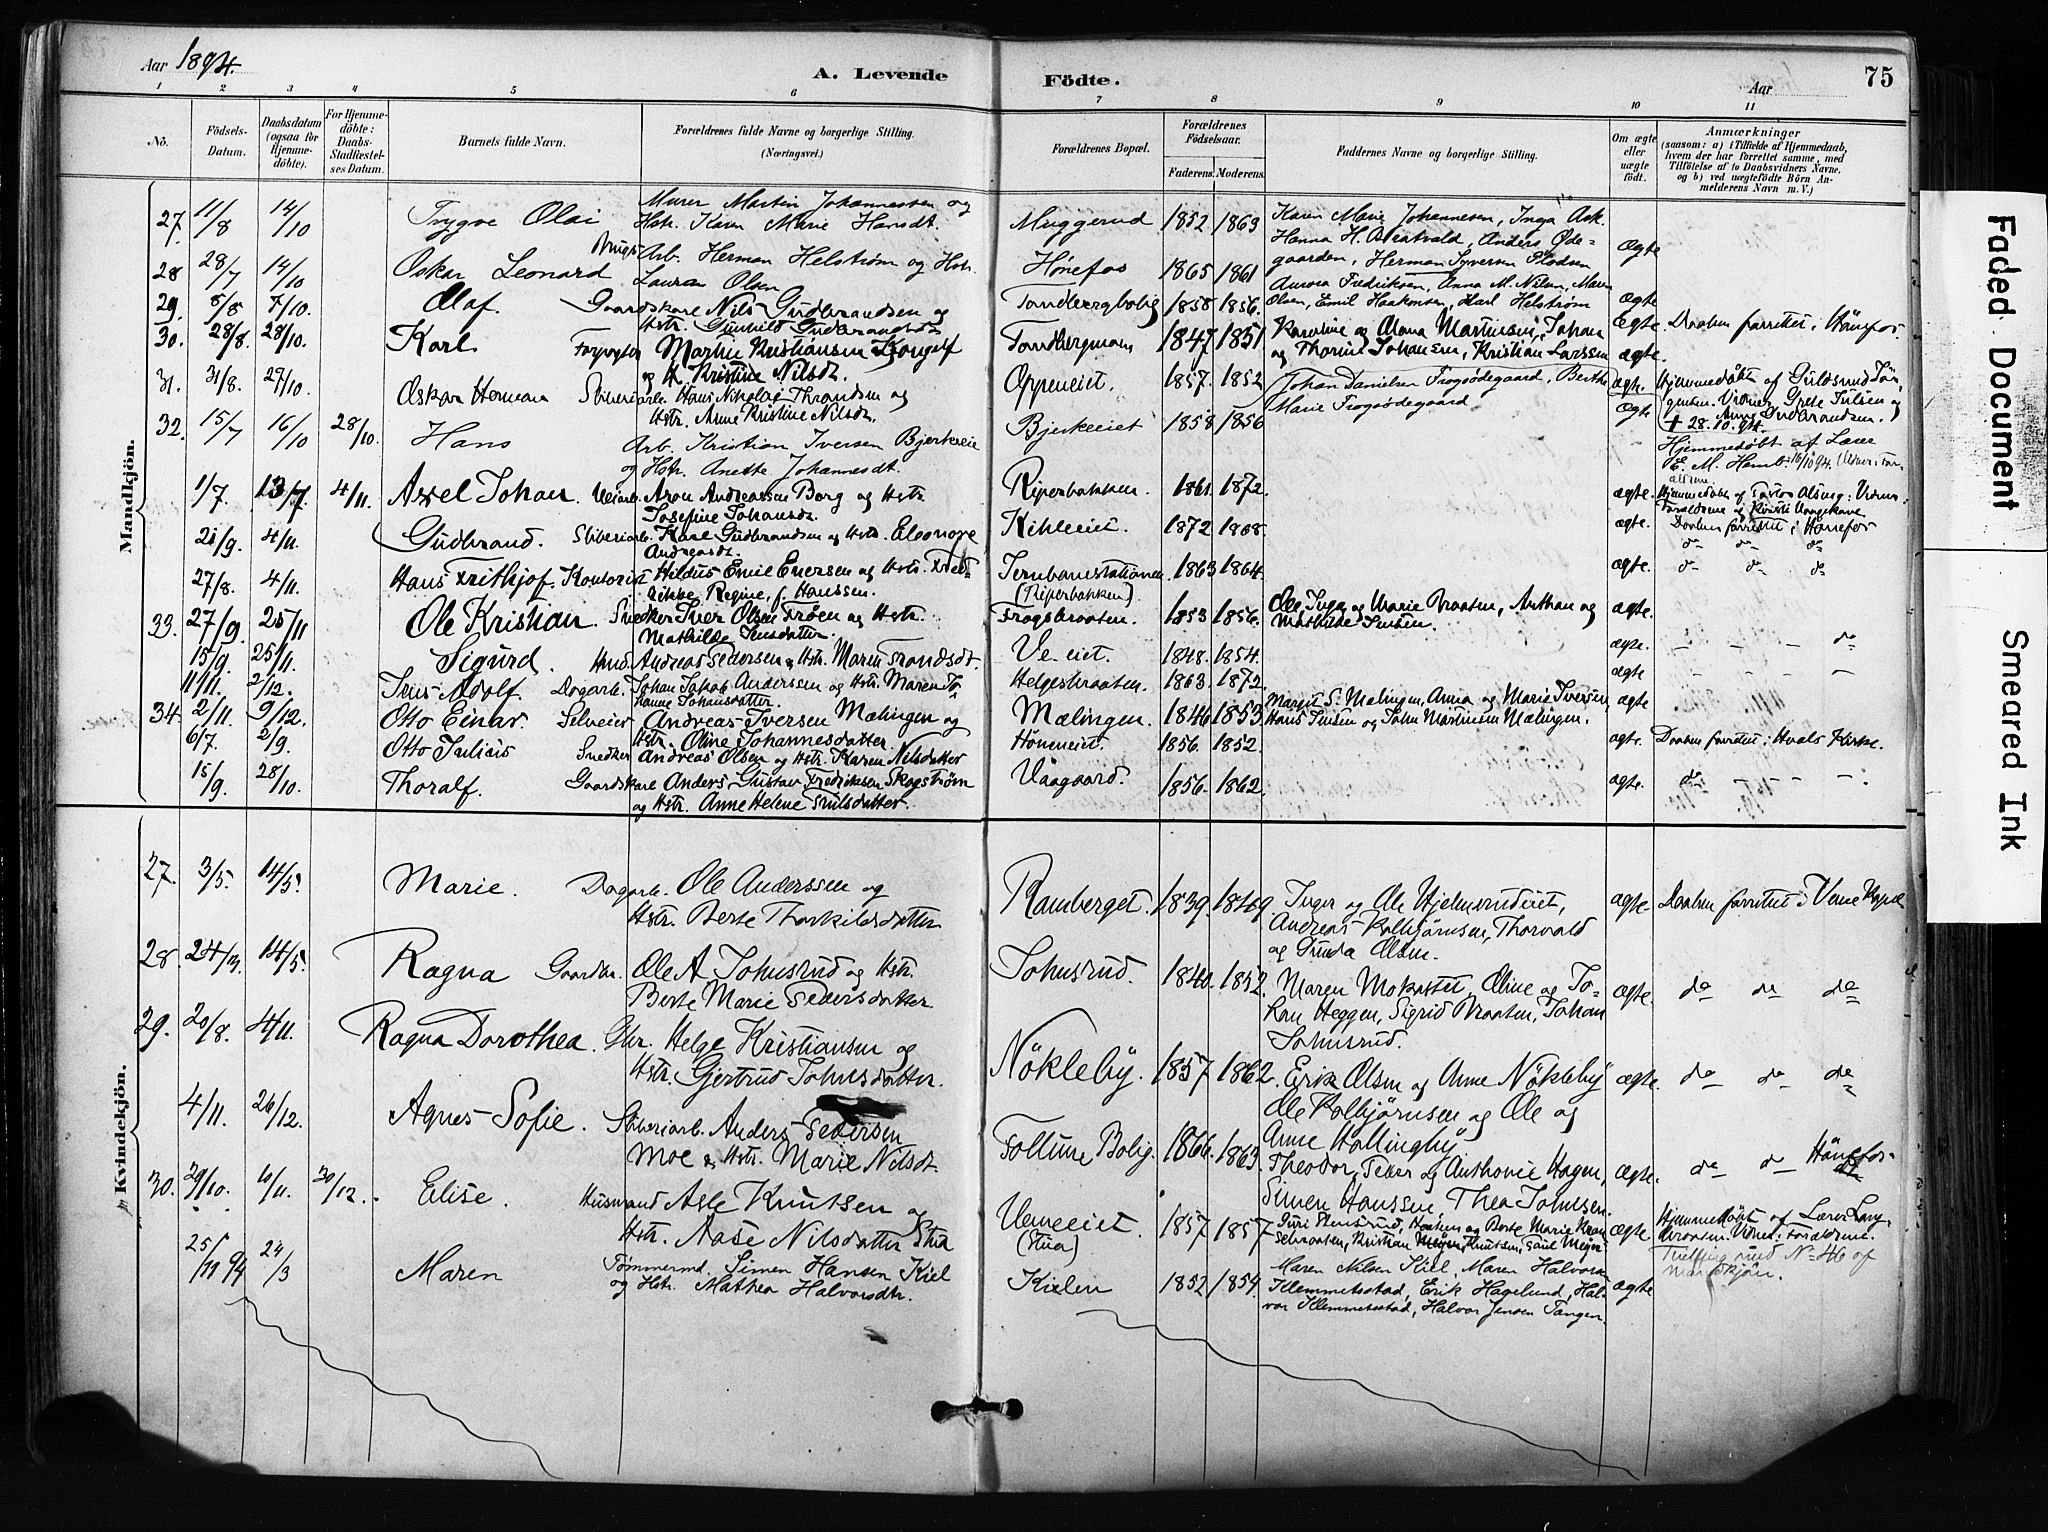 Aar 1894.
A. Levende Födte.
Aar
75
1 2 3 4 5 6 7 8 9 10 11
No.
Födsels-Datum.
Daabsdatum (ogsaa for Hjemme-döbte).
For Hjemme-döbte: Daabs-Stadfæstel-ses Datum.
Barnets fulde Navn.
Forældrenes fulde Navne og borgerlige Stilling. (Næringsvei.)
Forældrenes Bopæl.
Forældrenes Födselsaar.
Faderens. Moderens.
Faddernes Navne og borgerlige Stilling.
Om ægte eller uægte født.
Anmærkninger (saasom: a) i Tilfælde af Hjemmedaab, hvem der har forrettet samme, med Tilföielse af to Daabsvidners Navne. og b) ved uægtefödte Börn An-melderens Navn m. V.)
Mandkjön.
27. 11/8 14/10 Trygve Olai Murer Martin Johannessen og
Hstr. Karen Marie Hansdt. Muggerud 1852 1863 Karen Marie Johannesen, Inga Ask.
Hanna H. Bratvald, Anders Øde-
gaarden, Herman Syversen ægte
28 28/7 14/10 Oskar Leonard Brugs Arb. Herman Helstrøm og Hstr.
Laura Olsen Hønefos 1865 1861 Aurora Fredriksen, Anna M. Nilsen, Maren
Olsen, Emil Haakonsen, Karl Helstrøm ægte
29. 5/8 7/10. Olaf Gaardskarl Nils Gudbrandsen og
Hstr. Gunhild Tandbergbolig 1858 1856. ægte Daaben forrettet i Hönefos.
30. 28/8. 28/10. Karl Forpagter Martin Kristiansen
og H. Kristine Nilsdt. Tandbergmoen 1847 1851 Karoline og Anna Martinsen, Johan
og Thorine Johansen, Kristian Larssen ægte.
31. 31/8. 27/10. Oskar Herman Sliberiarb. Hans Nikolai Thrandsen og
Hstr. Anne Kristine Nilsdt. Oppeneiet. 1857. 1852 ægte. Hjemmedøbt af Guldsmed Jör-
gensen. Vidner: Grete Julsen og
Anne Gudbrandsen.
+ 28.10.94.
32. 15/7 16/10 28/10. Hans Arb. Kristian Iversen Bjerkeeie
og Hstr. Anette Johannesdt. Bjerkeeiet 1858 1856 Johan Danielsen Frogsödegaard, Berthe
Marie Frogsödegaard ægte Hjemmedøbt af Lærer
E. M. Hamb. 16/10 94.
1/7. 13/7 4/11. Axel Johan. Veiarb. Aron Andreassen Borg og Hstr
Josefine Johansdt. Riperbakken. 1861. 1872. ægte. Hjemmedøbt af Pastor Alsing: Vidner:
Forældrene og Kirsti
21/9. 4/11. Gudbrand. Sliberiarb. Karl Gudbrandsen og Hstr. Eleonore
Andreasdt. Kihleeiet. 1872 1868. ægte Daaben forrettet i Hönefos
27/8. 4/11. Hans Frithjof. Kontorist Hildus Emil Evensen og Hstr. Fred-
rikke Regine, f. Hanssen. Jernbanestationen
(Riperbakken). 1863 1864. ægte. do do do
33. 27/9. 25/11 Ole Kristian. Snedker Iver Olsen Frøen og Hstr.
Mathilde Jensdatter. Frogsbraaten. 1853 1856. Ole, Inga og Marie Braaten, Arthan og
Mathilde Jensen. ægte.
15/9. 25/11. Sigurd. Hmd. Andreas Pedersen & Hstr. Maren Trandsdt. Ve-eiet. 1848. 1854. ægte. – – – do
11/11. 2/12. Jens Adolf. Dagarb. Johan Jakob Anderssen og Hstr. Maren Jo-
hanne Johansdatter. Helgesbraaten. 1863. 1872. ægte – – – –
34. 2/11. 9/12. Otto Einar. Selveier Andreas Iversen Mælingen og
Hstr. Oline Johannesdatter. Mælingen. 1846 1853 Margit S. Mælingen, Anna og Marie Iversen,
Hans Jensen og John Martinsen Mælingen. ægte
6/7. 2/9. Otto Julius Snedker Andreas Olsen og Hstr. Karen Nilsdatter Höneneiet. 1856. 1852. ægte. Daaben forrettet i Hvals Kirke.
15/9. 28/10. Thoralf. Gaardskarl Anders Gustav Fredriksen Skogstrøm
og Hstr. Anne Helene Trulsdatter. Vaagaard. 1856. 1862. ægte. do – – –
Kvindekjön.
27. 3/5. 14/5. Marie. Dagarb. Ole Anderssen og
Hstr. Berte Thorkildsdatter Ramberget. 1839. 1849 Inger og Ole Hjelmerudeiet,
Andreas Kolbjørnsen, Thorvald
og Gunda Olsen. ægte. Daaben forrettet i Veme Kapel
28. 24/3. 14/5. Ragna Gaardbr. Ole A Johnsrud og Hstr.
Berte Marie Pedersdatter Johnsrud. 1840. 1852. Maren Mokastet, Oline og Jo-
han Heggen, Sigrid Braaten, Johan
Johnsrud. ægte. do do do
29. 20/8. 4/11. Ragna Dorothea. Gbr. Helge Kristiansen og
Hstr. Gjertrud Johnsdatter. Nökleby. 1857 1862. Erik Olsen og Anne Nökleby
Ole Kolbjørnsen og Ole og
Anne Hallingby ægte. do do do
4/11. 26/12. Agnes Sofie. Sliberiarb. Anders Pedersen
Moe & Hstr. Marie Nilsdt. Follum Bolig. 1866. 1863. Theodor, Peter og Anthonie Hagen,
Simen Hanssen, Thea Johnsen. ægte. do do Hönefos
30. 29/10. 10/11. 30/12. Elise. Husmand Asle Knutsen og
Hstr. Aase Nilsdatter Stua Vemeeiet
(Stua) 1857 1857 Guri Stensrud, Haaken og Berte Marie
Kristian Meyer, Knutsen, Paul Meyer ægte Hjemmedøbt af Lærer Lang-
braaten. Vidner: Forældrene.
25/11 94 24/3 Maren Tømmermd. Simen Hansen Kiel
og Hstr. Mathea Halvorsdtr. Kielen 1852 1854. Maren Nilsen Kiel, Maren Halvorsen
Klemmetsstad, Erik Hagelund, Hal-
vor Klemmetsstad, Halvor Jensen Tangen. ægte Tvilling med No 46 af
mandkjön.
Faded Document
Smeared Ink